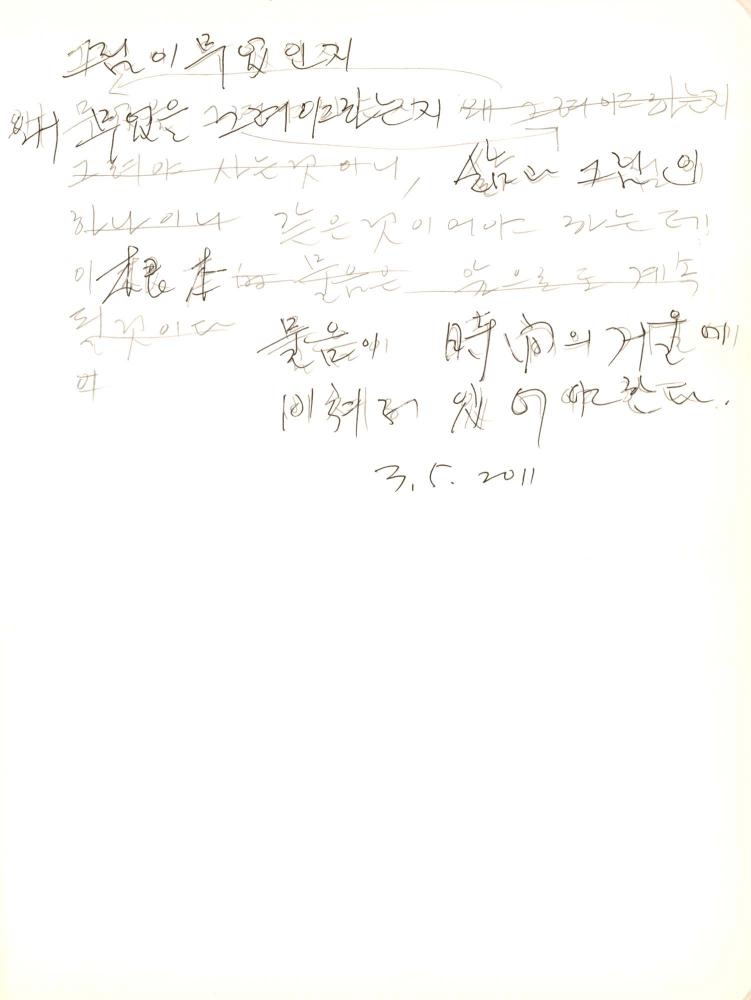 그림이 무엇인지
왜 무엇을 그려야 하는지 왜 그려야 하는지
그려야 사는 것 아니, 삶과 그림의
하나이나 같은 것이어야 하는데!
이 根本 물음은 앞으로도 계속
될 것이다 물음이 時間의 거울에
비쳐져 있어야 한다.
3. 5. 2011